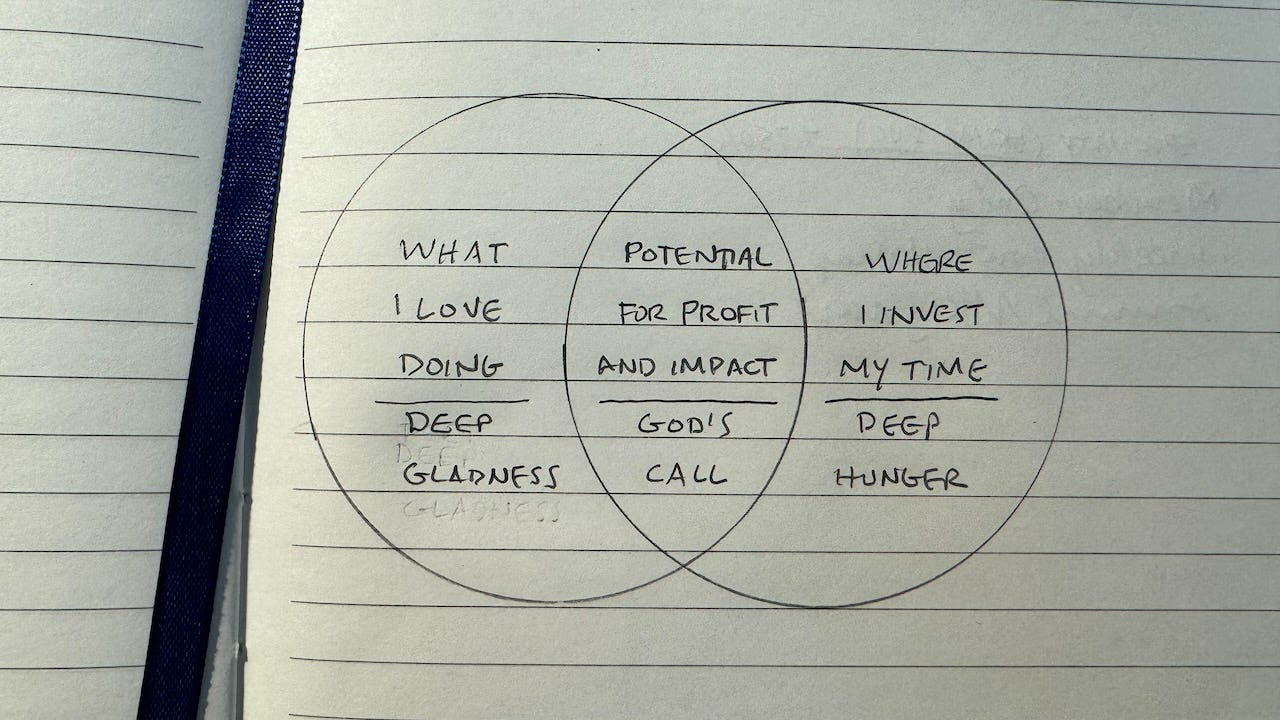 WHAT
I LOVE
DOING
DEEP
GLADNESS
POTENTIAL
FOR PROFIT
AND IMPACT
GOD'S
CALL
WHERE
I INVEST
MY TIME
DEEP
HUNGER